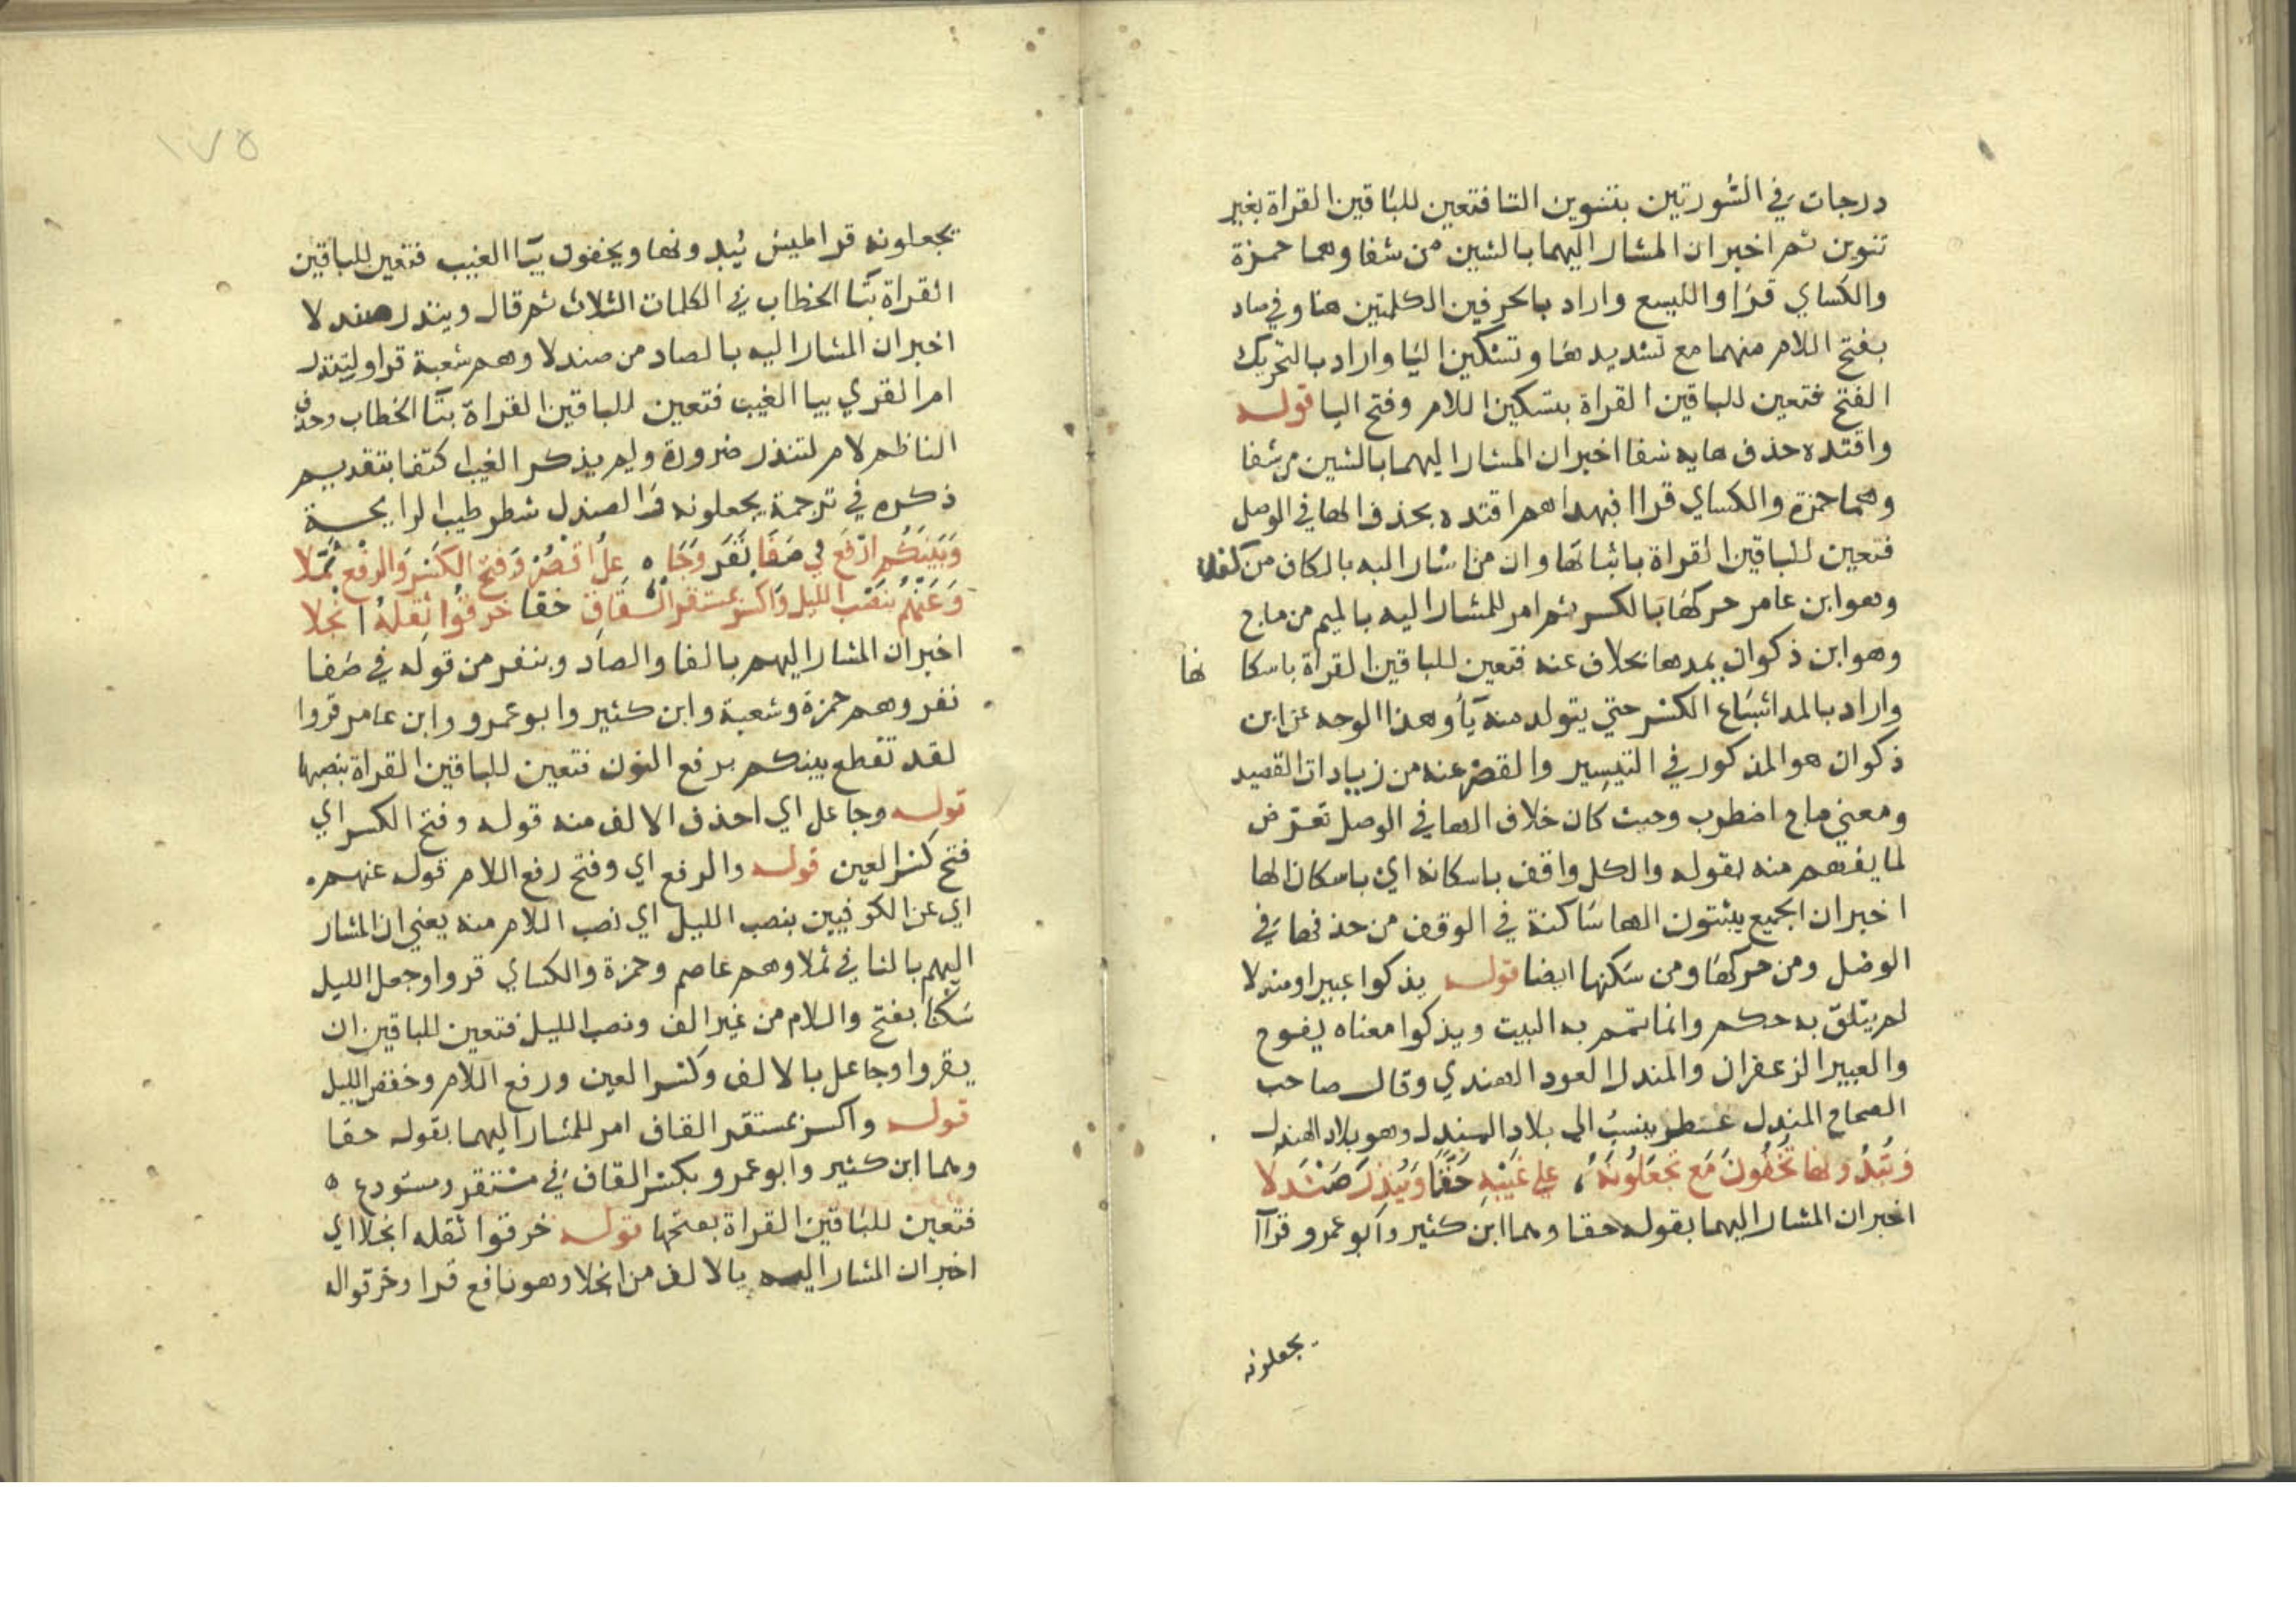 درجات في السورتين بتنوين التا فتعين للباقين القراة بغير
تنوين ثم اخبر ان المشار اليهما بالشين من شفا وهما حمزة
والكساي قرا والليسع واراد بالحرفين الكلمتين هنا وفي صاد
بفتح اللام منهما مع تشديدها وتسكين اليا واراد بالتحريك
الفتح فتعين للباقين القراة بتسكين اللام وفتح اليا قوله
واقتده حذف هايه شفا اخبر ان المشار اليهما بالشين من شفا
وهما حمزة والكساي قراا فبهداهم اقتده بحذف الها في الوصل
فتعين للباقين القراة باثباتها وان من اشار اليه بالكاف من كفلا
وهو ابن عامر حركها بالكسر ثم امر للمشار اليه بالميم من ماج
وهو ابن ذكوان بمدها بخلاف عنه فتعين للباقين القراة باسكا نها
واراد بالمد اشباع الكسر حتي يتولد منه يآ وهذا الوجه عن ابن
ذكوان هو المذكور في التيسير والقصر عنه من زيادات القصيد
ومعني ماج اضطرب وحيث كان خلاف الها في الوصل تعترض
لما يفهم منه بقوله والكل واقف باسكانه اي باسكان الها
اخبر ان الجميع يثبتون الها ساكنة في الوقف من حذفها في
الوصل ومن حركها ومن سكنها ايضا قوله يذكوا عبيرا ومندلا
لم يتلق به حكم وانما تمم به البيت ويذكوا معناه يفوح
والعبير الزعفران والمندل العود الهندي وقال صاحب
الصحاح المندل عطر ينسب الي بلاد المندل وهو بلاد الهند
وتبدونها تخفون مع تجعلونه، علي غيبه حقا وينذر صندلا
اخبر ان المشار اليهما بقوله حقا وهما ابن كثير وابو عمرو قراآ
يجعلونه
١٧٥
يجعلونه قراطيس يبدونها ويخفون بيآ الغيب فتعين للباقين
القراة بتآ الخطاب في الكلمات الثلاث ثم قال وينذر صندلا
اخبر ان المشار اليه بالصاد من صندلا وهم شعبة قرا ولينذر
ام القري بيا الغيب فتعين للباقين القراة بتآ الخطاب وحذف
الناظم لام لتنذر ضرورة ولم يذكر الغيب اكتفا بتقديم
ذكره في ترجمة يجعلونه فرا الصندل شطر طيب الرايحة
وبينكم ارفع في صفا نفر وجا ه عل اقصر وفتح الكسر والرفع ثملا
وعنهم بنصب الليل واكسر بمستقر القاف حقا خرقوا ثقله انجلا
اخبر ان المشار اليهم بالفا والصاد وبنفر من قوله في صفا
نفر وهم حمزة وشعبة وابن كثير وابو عمرو وابن عامر قروا
لقد تقطع بينكم برفع النون فتعين للباقين القراة بنصبها
قوله وجاعل اي احذف الالف منه قوله وفتح الكسر اي
فتح كسر العين قوله والرفع اي وفتح رفع اللام قوله عنهم
اي عن الكوفيين بنصب الليل اي نصب اللام منه يعني ان المشار
اليهم بالثا في ثملا وهم عاصم وحمزة والكساي قروا وجعل الليل
سكنا بفتح واللام من غير الف ونصب الليل فتعين للباقين ان
يقروا وجاعل بالالف وكسر العين ورفع اللام وخفض الليل
قوله واكسر بمستقر القاف امر للمشار اليهما بقوله حقا
وهما ابن كثير وابو عمرو بكسر القاف في مستقر ومستودع ه
فتعين للباقين القراة بفتحها قوله خرقوا ثقله انجلا اي
اخبر ان المشار اليه بالالف من انجلا وهو نافع قرا وخرقوا له